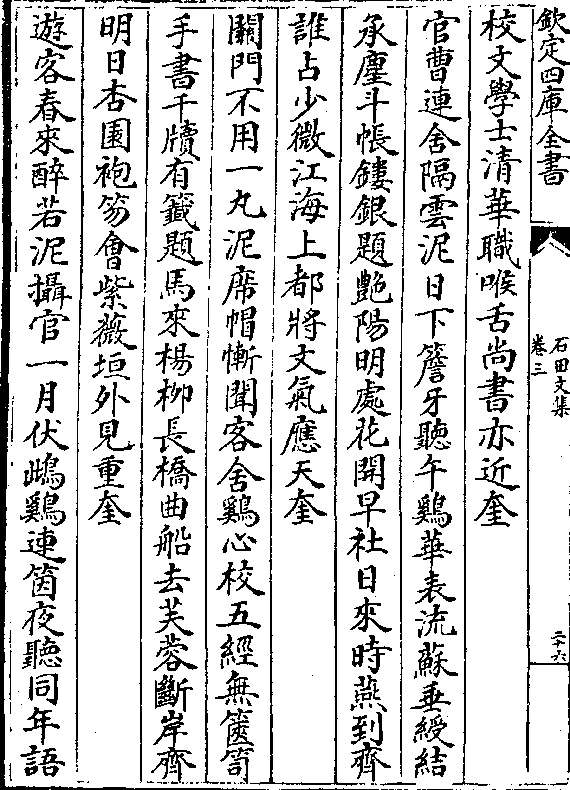 欽定四庫全書
石田文集
卷三
二十六
校文學士清華職喉舌尚書亦近奎
官曹連舍隔雲泥日下簷牙聽午鷄華表流蘇垂綬結
承塵斗帳鏤銀題艶陽明處花開早社日來時燕到齊
誰占少微江海上都將文氣應天奎
關門不用一丸泥席帽慚聞客舍鷄心校五經無篋笥
手書千牘有籤題馬來楊柳長橋曲船去芙蓉斷岸齊
明日杏園袍笏會紫薇垣外見重奎
遊客春來醉若泥攝官一月伏鴟鷄連箇夜聽同年語